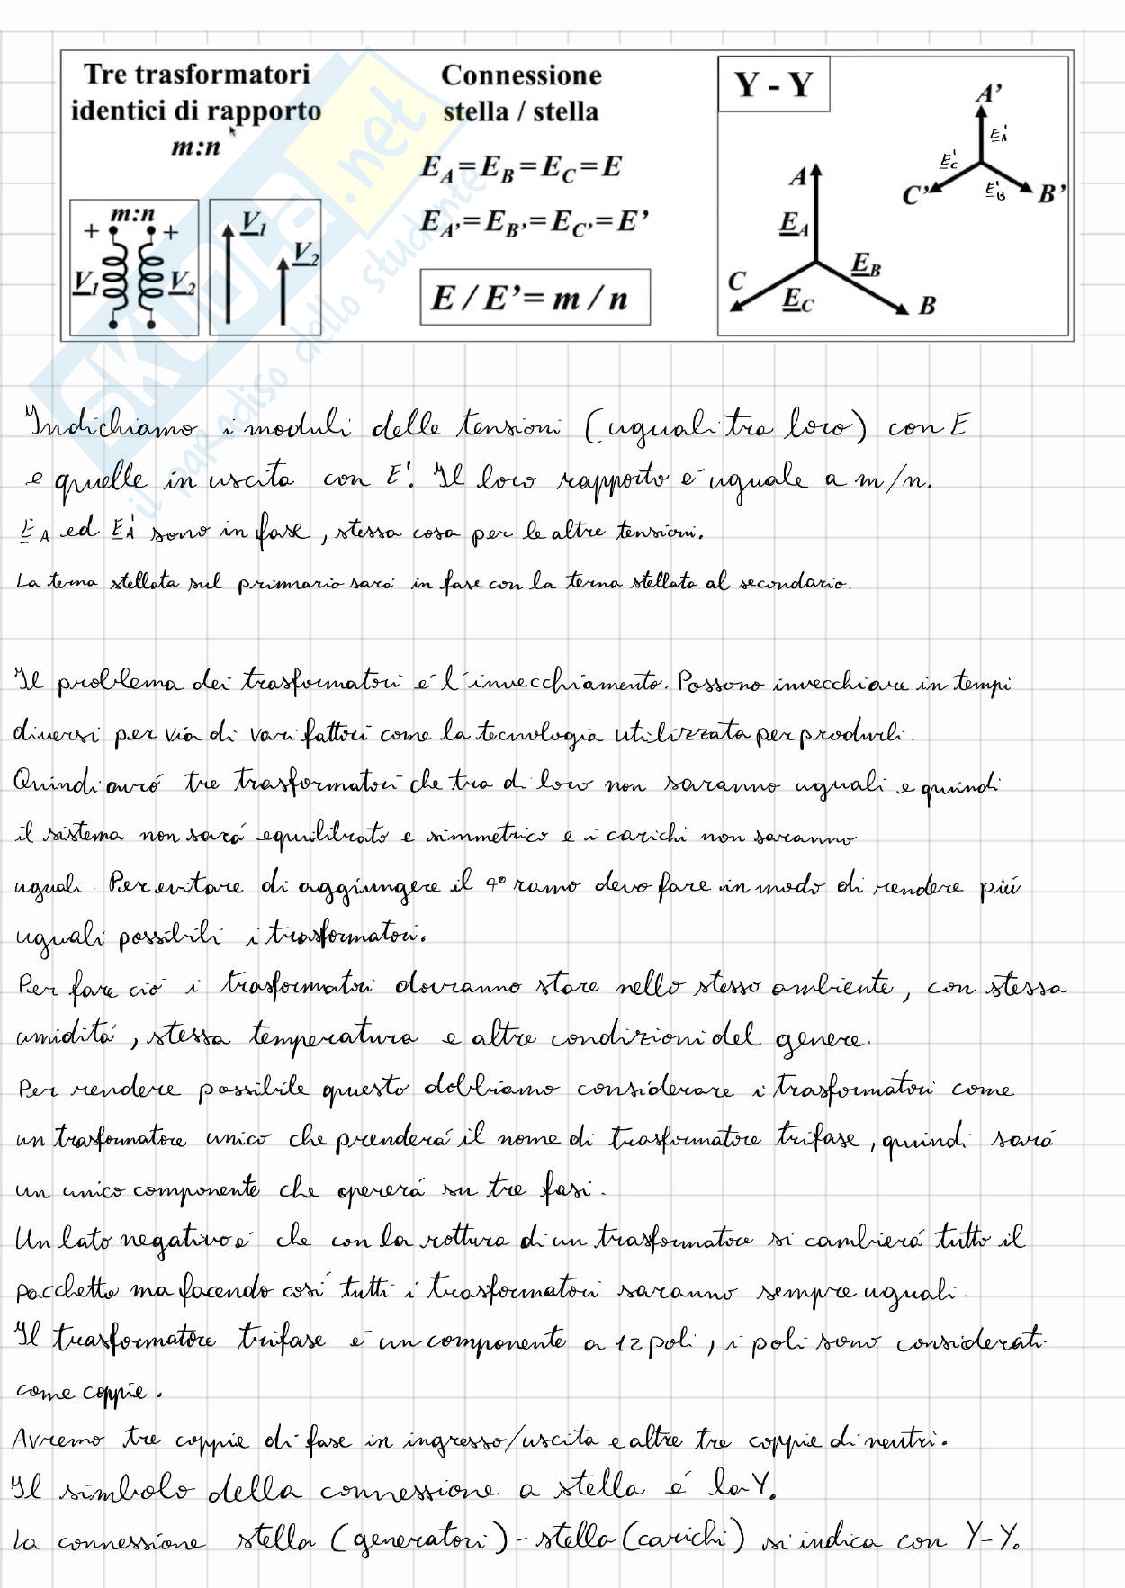 Tre trasformatori
identici di rapporto
m:n
m:n
+ +
V1 V2
V1
V2
Connessione
stella / stella
EA=EB=EC=E
EA'=EB'=EC'=E'
E / E'= m / n
Y - Y
A
EA
EB
B
C
EC
A'
E'A
E'C
C'
E'B
B'
SKUOLA.net
il paradiso dello studente
Indichiamo i moduli delle tensioni (uguali tra loro) con E
e quelle in uscita con E'. Il loro rapporto è uguale a m/n.
EA ed E'A sono in fase, stessa cosa per le altre tensioni.
La terna stellata sul primario sarà in fase con la terna stellata al secondario.
Il problema dei trasformatori è l'invecchiamento. Possono invecchiare in tempi
diversi per via di vari fattori come la tecnologia utilizzata per produrli.
Quindi avrò tre trasformatori che tra di loro non saranno uguali e quindi
il sistema non sarà equilibrato e simmetrico e i carichi non saranno
uguali. Per evitare di aggiungere il 4° ramo devo fare in modo di rendere più
uguali possibili i trasformatori.
Per fare ciò i trasformatori dovranno stare nello stesso ambiente, con stessa
umidità, stessa temperatura e altre condizioni del genere.
Per rendere possibile questo dobbiamo considerare i trasformatori come
un trasformatore unico che prenderà il nome di trasformatore trifase, quindi sarà
un unico componente che opererà su tre fasi.
Un lato negativo è che con la rottura di un trasformatore si cambierà tutto il
pacchetto ma facendo così tutti i trasformatori saranno sempre uguali.
Il trasformatore trifase è un componente a 12 poli, i poli sono considerati
come coppie.
Avremo tre coppie di fase in ingresso/uscita e altre tre coppie di neutri.
Il simbolo della connessione a stella è la Y.
La connessione stella (generatori) - stella (carichi) si indica con Y-Y.